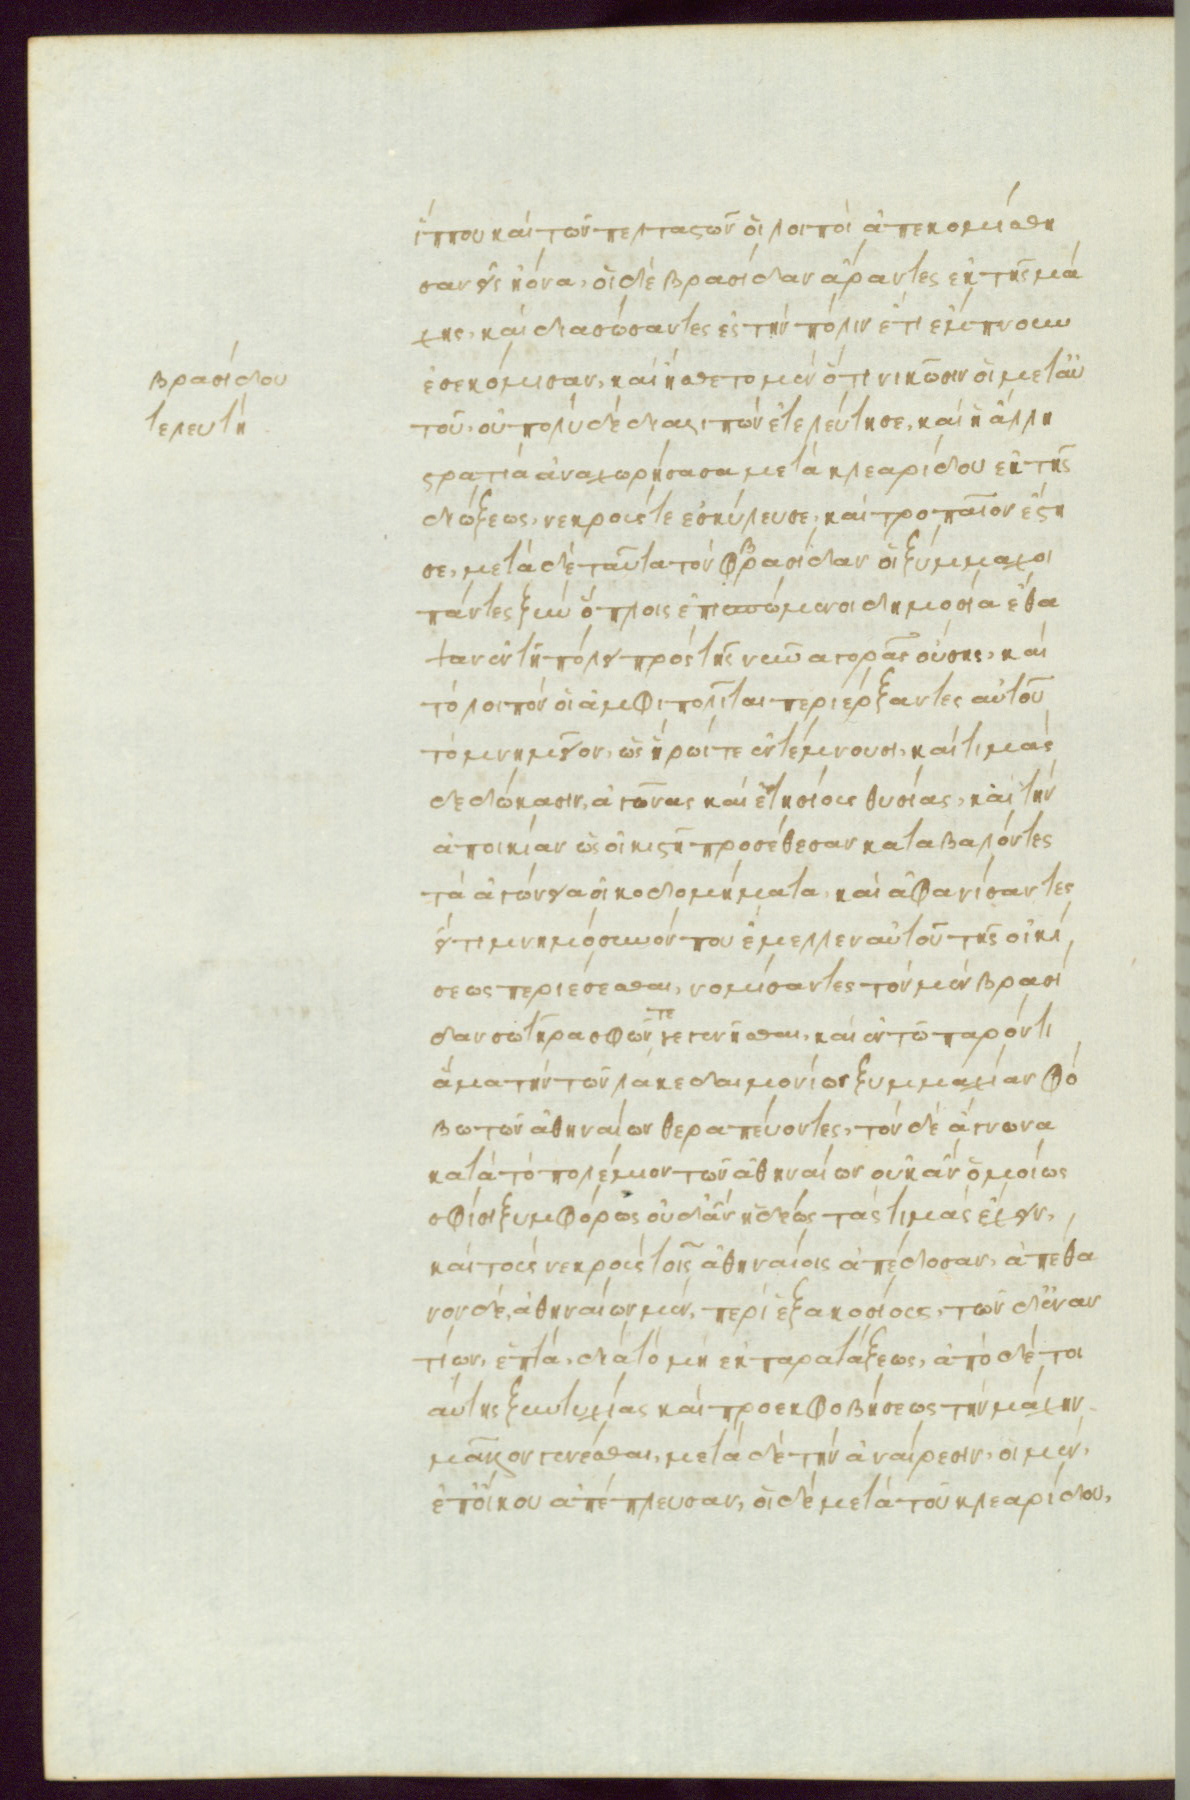 ἵππου καὶ τῶν πελταστῶν οἱ λοιποὶ ἀπεκομίσθη
σαν ἐς ἠϊόνα, οἱ δὲ βρασίδαν ἄραντες ἐκ τῆς μά
χης, καὶ διασώσαντες ἐς τὴν πόλιν ἔτι ἔμπνουν
ἐσεκόμισαν, καὶ ἤσθετο μὲν ὅτι νικῶσιν οἱ μετ' αὐ
τοῦ, οὐ πολὺ δὲ διαλιπὼν ἐτελεύτησε, καὶ ἡ ἄλλη
στρατιὰ ἀναχωρήσασα μετὰ κλεαρίδου ἐκ τῆς
διώξεως, νεκρούς τε ἐσκύλευσε, καὶ τροπαῖον ἔστη
σε, μετὰ δὲ ταῦτα τὸν βρασίδαν οἱ ξύμμαχοι
πάντες ξὺν ὅπλοις ἐπισπώμενοι δημοσίᾳ ἔθα
ψαν ἐν τῇ πόλει πρὸς τῆς νῦν ἀγορᾶς οὔσης, καὶ
τὸ λοιπὸν οἱ ἀμφιπολῖται περιέρξαντες αὐτοῦ
τὸ μνημεῖον, ὡς ἥρωί τε ἐντέμνουσι, καὶ τιμὰς
δεδώκασιν, ἀγῶνας καὶ ἐτησίους θυσίας, καὶ τὴν
ἀποικίαν ὡς οἰκιστῇ προσέθεσαν καταβαλόντες
τὰ ἁγνώνεια οἰκοδομήματα, καὶ ἀφανίσαντες
εἴ τι μνημόσυνόν που ἔμελλεν αὐτοῦ τῆς οἰκί
σεως περιέσεσθαι, νομίσαντες τὸν μὲν βρασί
δαν σωτῆρα σφῶν τε γεγενῆσθαι, καὶ ἐν τῷ παρόντι
ἅμα τὴν τῶν λακεδαιμονίων ξυμμαχίαν φό
βω τῶν ἀθηναίων θεραπεύοντες, τὸν δὲ ἅγνωνα
κατὰ τὸ πολέμιον τῶν ἀθηναίων οὐκ ἂν ὁμοίως
σφίσι ξυμφόρως οὐδ' ἂν ἡδέως τὰς τιμὰς ἔχειν,
καὶ τοὺς νεκροὺς τοῖς ἀθηναίοις ἀπέδοσαν, ἀπέθα
νον δέ, ἀθηναίων μέν, περὶ ἑξακοσίους, τῶν δ' ἐναν
τίων, ἑπτά, διὰ τὸ μὴ ἐκ παρατάξεως, ἀπὸ δὲ τοι
αύτης ξυντυχίας καὶ προεκφοβήσεως τὴν μάχην
μᾶλλον γενέσθαι, μετὰ δὲ τὴν ἀναίρεσιν, οἱ μέν,
ἐπ' οἴκου ἀπέπλευσαν, οἱ δὲ μετὰ τοῦ κλεαρίδου,
βρασίδου
τελευτή